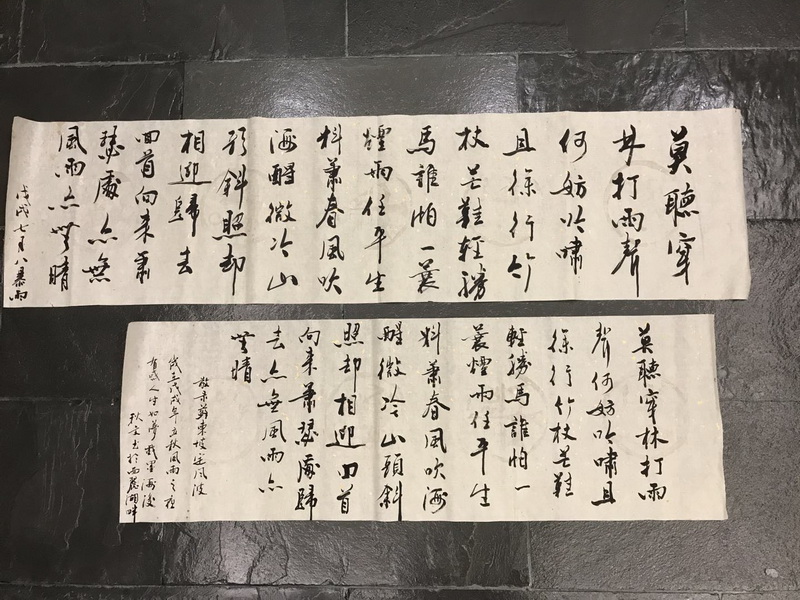 莫聽穿
林打雨聲
何妨吟嘯
且徐行竹
杖芒鞋輕勝
馬誰怕一蓑
煙雨任平生
料蕭春風吹
酒醒微冷山
頭斜照却
相迎歸去
回首向來蕭
瑟處亦無
風雨亦無晴
戊戌七月八暴雨
莫聽穿林打雨
聲何妨吟嘯且
徐行竹杖芒鞋
輕勝馬誰怕一
蓑煙雨任平生
料蕭春風吹酒
醒微冷山頭斜
照却相迎回首
向來蕭瑟處歸
去亦無風雨亦
無晴
敬录蘇東坡定風波
戊戌年立秋風雨之夜
有感人生如夢
書於西麗湖畔